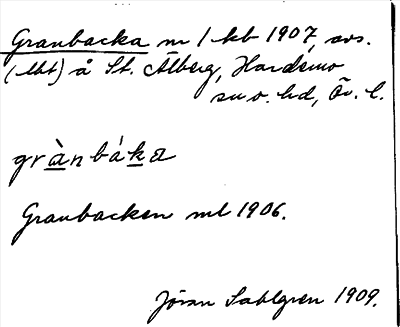 Granbacka m 1 kb 1907, avs.
(lht) å St. Ålberg, Hardemo
sn o. hd, Ör. l.
grànbákа
Granbacken ml 1906.
Jöran Sahlgren 1909.